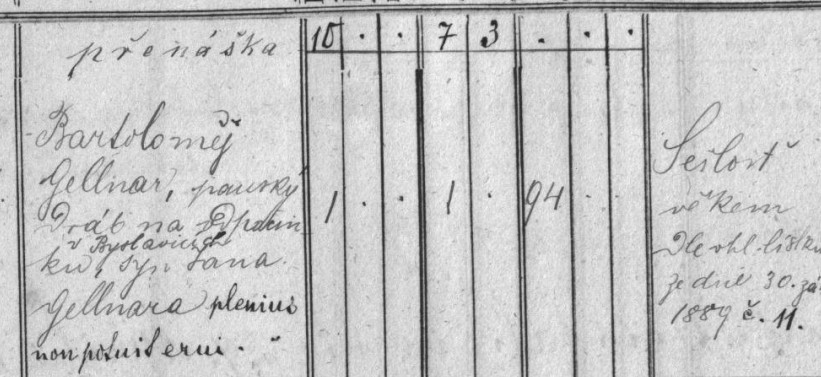 přenáška 10 . . 7 3 . . .
Bartoloměj
Gellnar, panský
Dráb na Odpočin
v Byslavicích
ku, syn Jana
Gellnara plenius
non potuit erui.
1 . . 1 . 94 . .
Sešlost
věkem
Dle ohl. lístku
ze dne 30. zá
1889 č. 11.